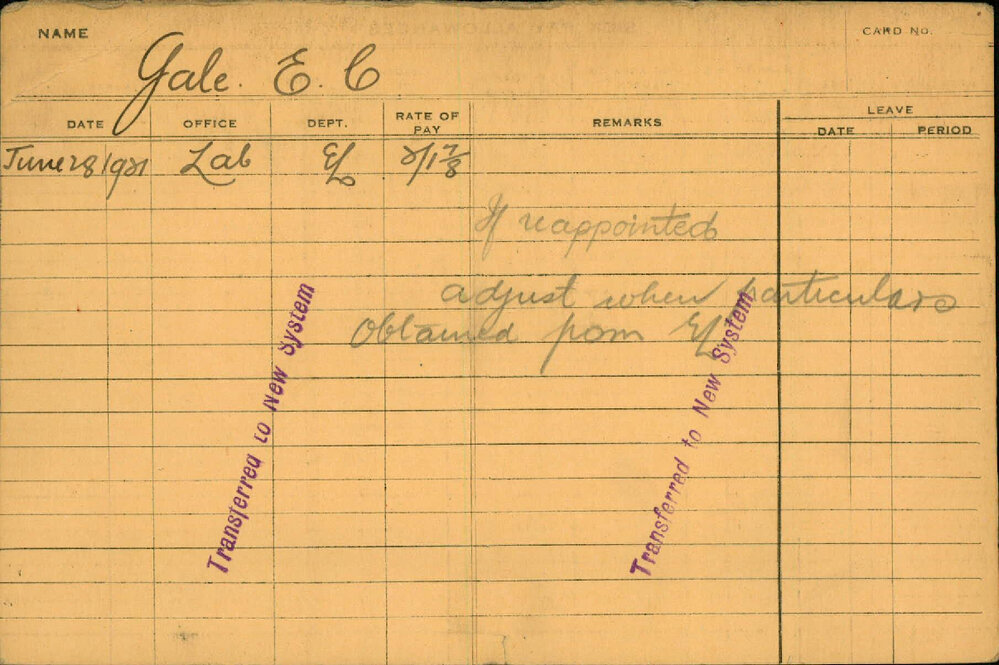 NAME
CARD No.
Gale. E. C
DATE OFFICE DEPT. RATE OF PAY REMARKS LEAVE
DATE PERIOD
June 28 1921 Lab EL 2/1 7/8
If reappointed
adjust when particulars
Obtained from EL
Transferred to New System
Transferred to New System